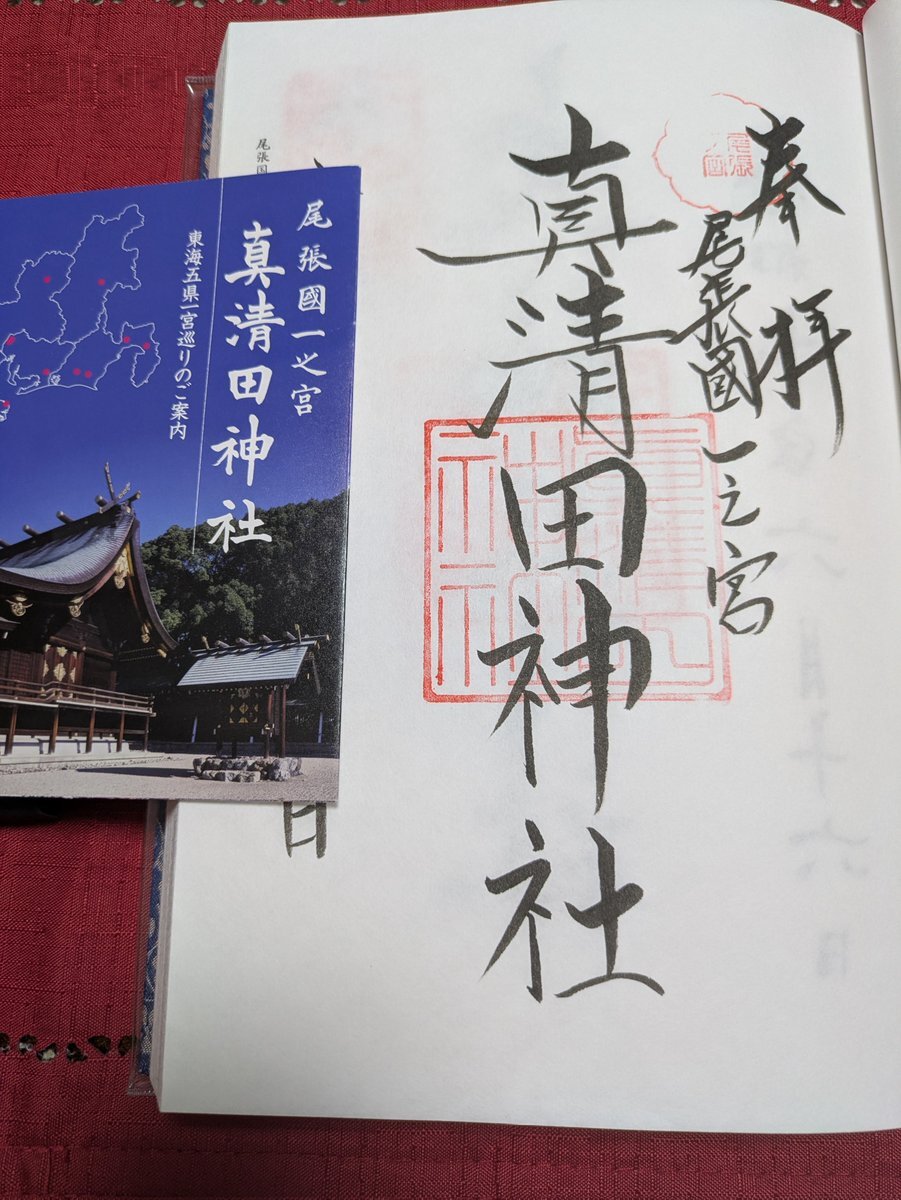 奉拝
尾張國一之宮
真清田神社
尾張国
日
尾張國一之宮
真清田神社
東海五県一宮巡りのご案内